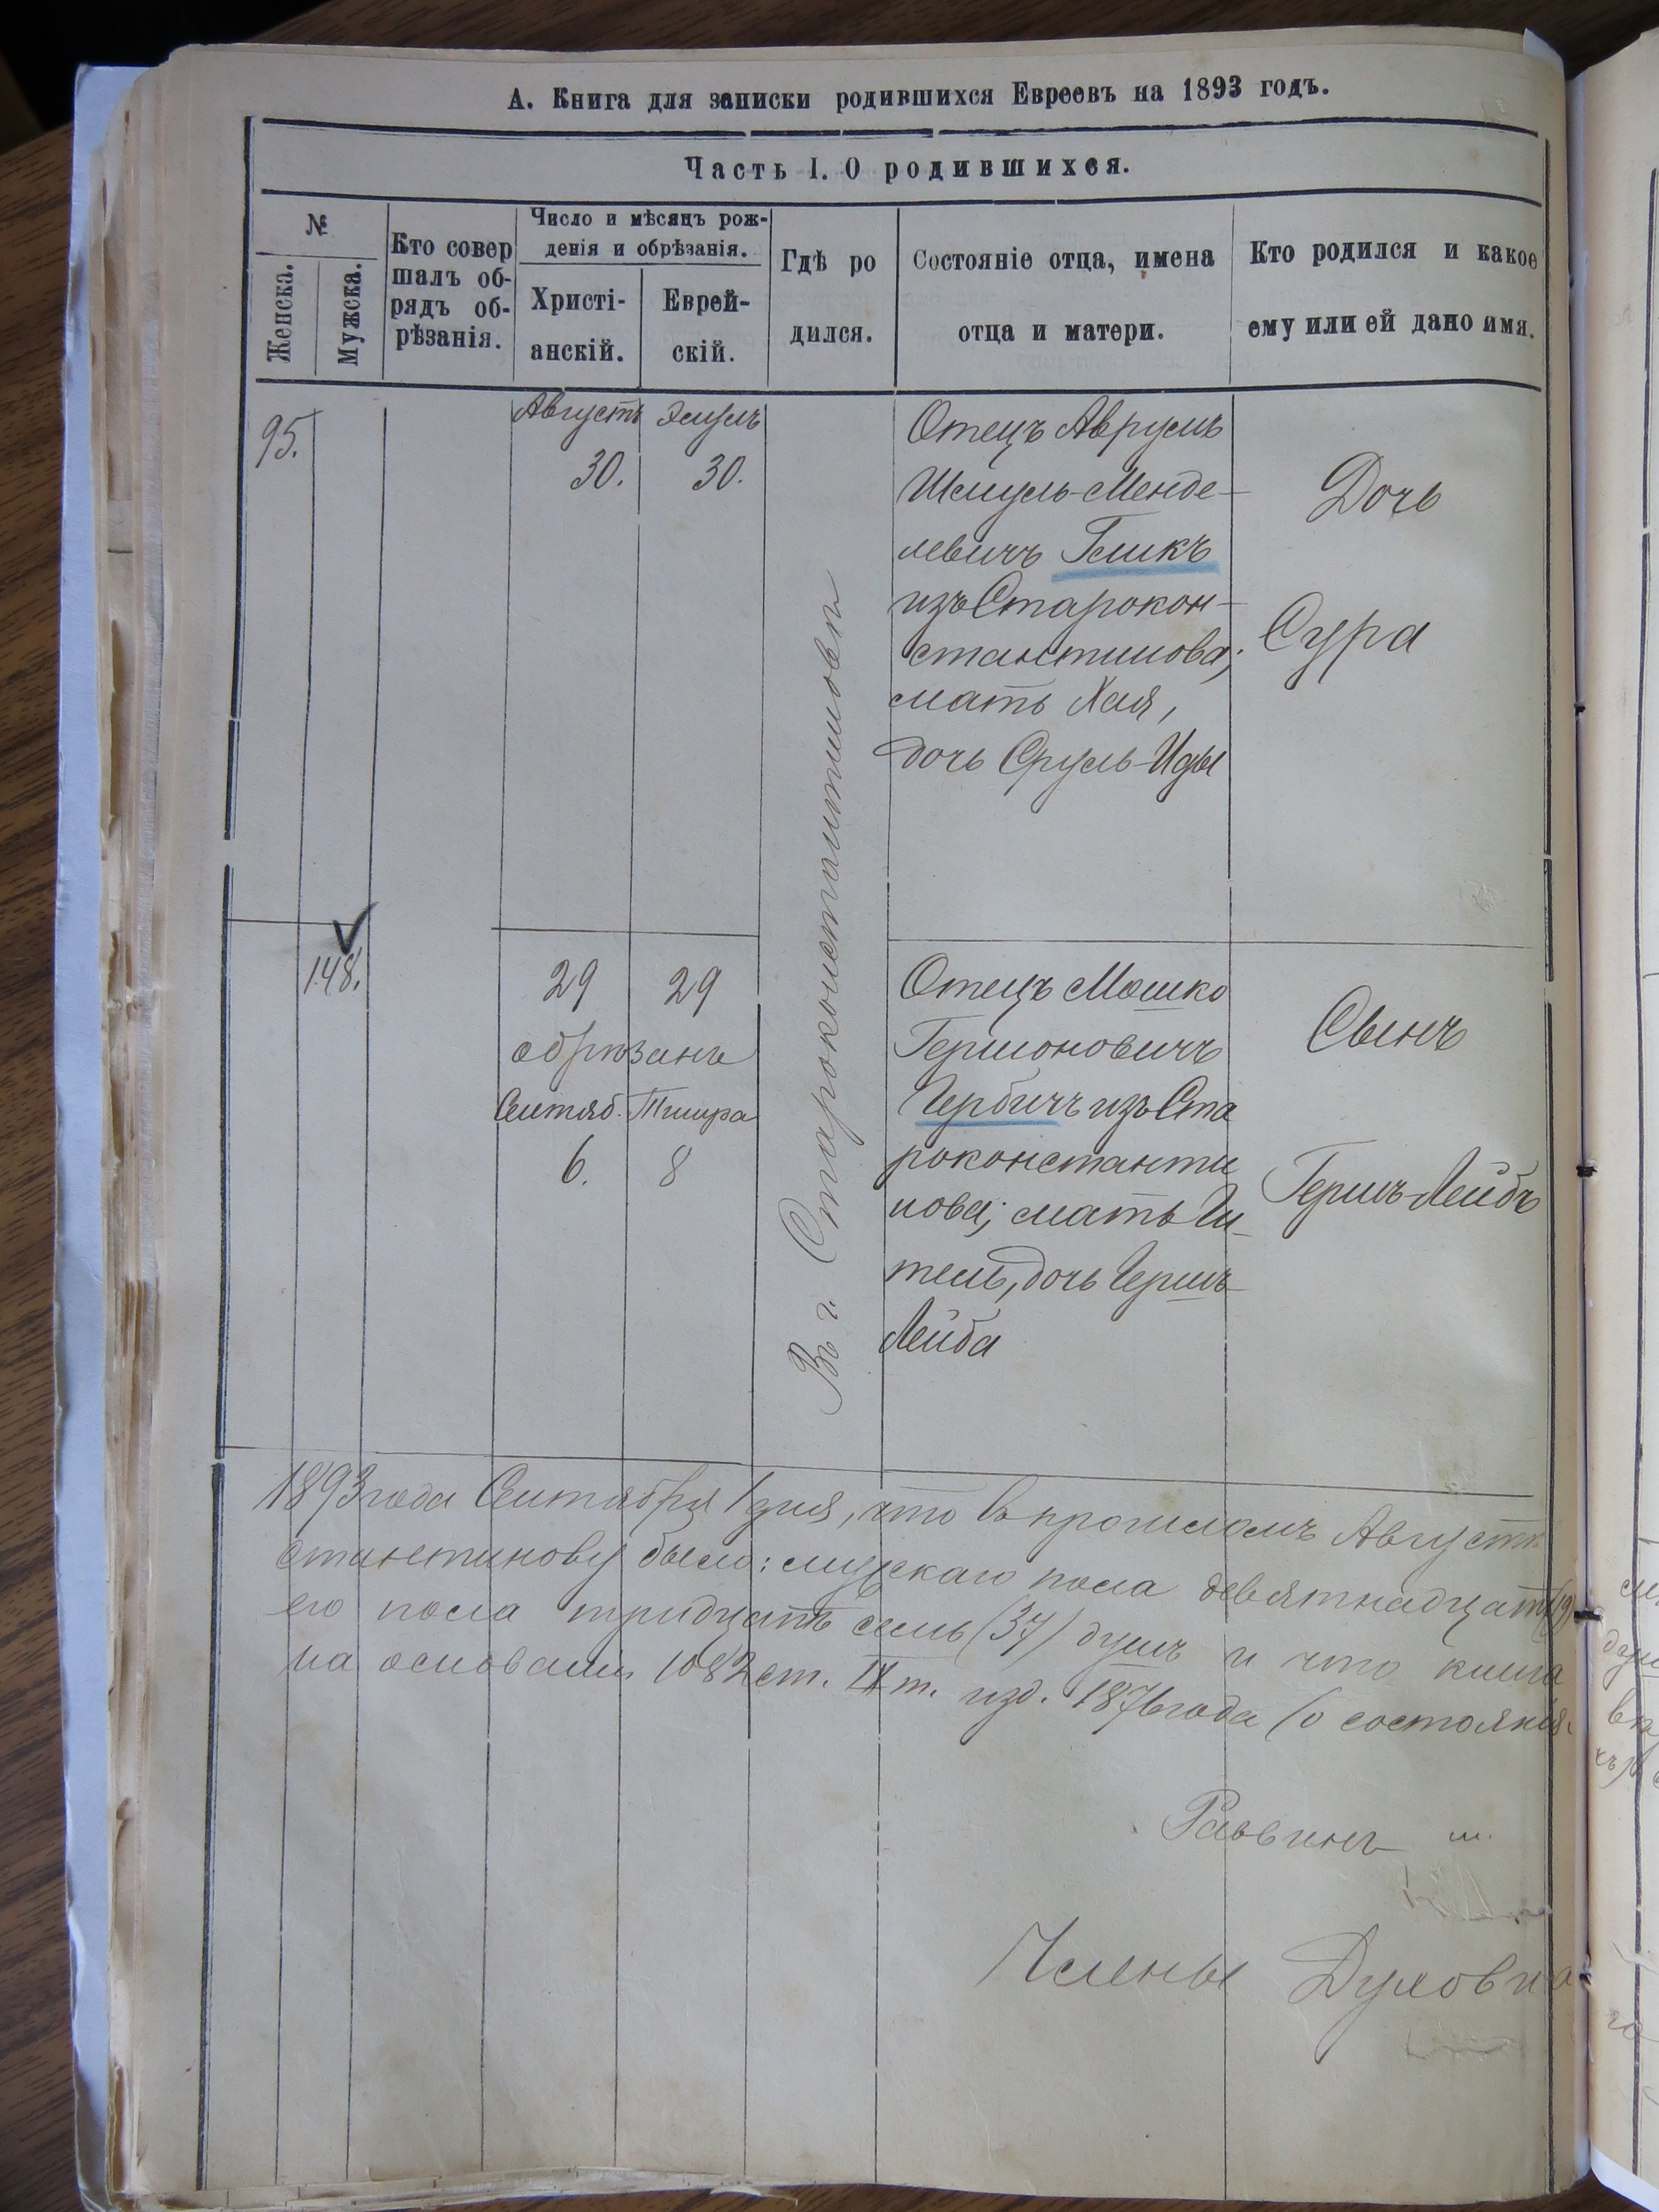 А. Книга для записки родившихся Евреевъ на 1893 годъ.
Часть I. О родившихся.
№
Женска.
Мужска.
Кто совер
шалъ об-
рядъ об-
рѣзанія.
Число и мѣсяцъ рож-
денія и обрѣзанія.
Христі-
анскій.
Еврей-
скій.
Гдѣ ро
дился.
Состояніе отца, имена
отца и матери.
Кто родился и какое
ему или ей дано имя.
95.
Августъ
30.
Элулъ
30.
Въ г. Староконстантиновѣ
Отецъ Аврумъ
Шмуль-Менде-
левичъ
изъ Старокон-
стантинова;
мать Хая,
дочь Сруль-Иды
Дочь
Сура
148.
29
29
обрѣзанъ
Сентяб.
Тишра
6.
8
Отецъ Мошко
Гершоновичъ
Гербичъ изъ Ста
роконстанти
нова; мать Ги-
тель, дочь Герш-
Лейба
Сынъ
Гершъ-Лейбъ
1893 года Сентября 1 дня, что въ прошломъ Августѣ
стантинову было: мужскаго пола девятнадцать (19)
его пола тридцать семь (37) душъ и что книга
на основаніи 1082 ст. IX т. изд. 1876 года (о состоянія
Раввинъ
Члены Духовна